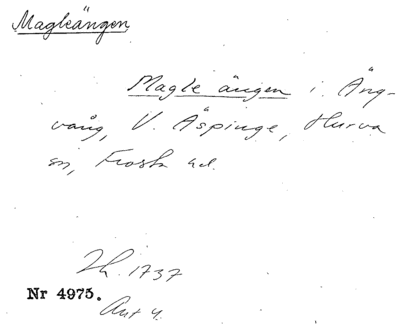 Magleängen
Magle ängen i Äng-
vång, V. Äspinge, Hurva
sn, Frosta hd.
Lh. 1737
Nr 4975.
Akt 4.